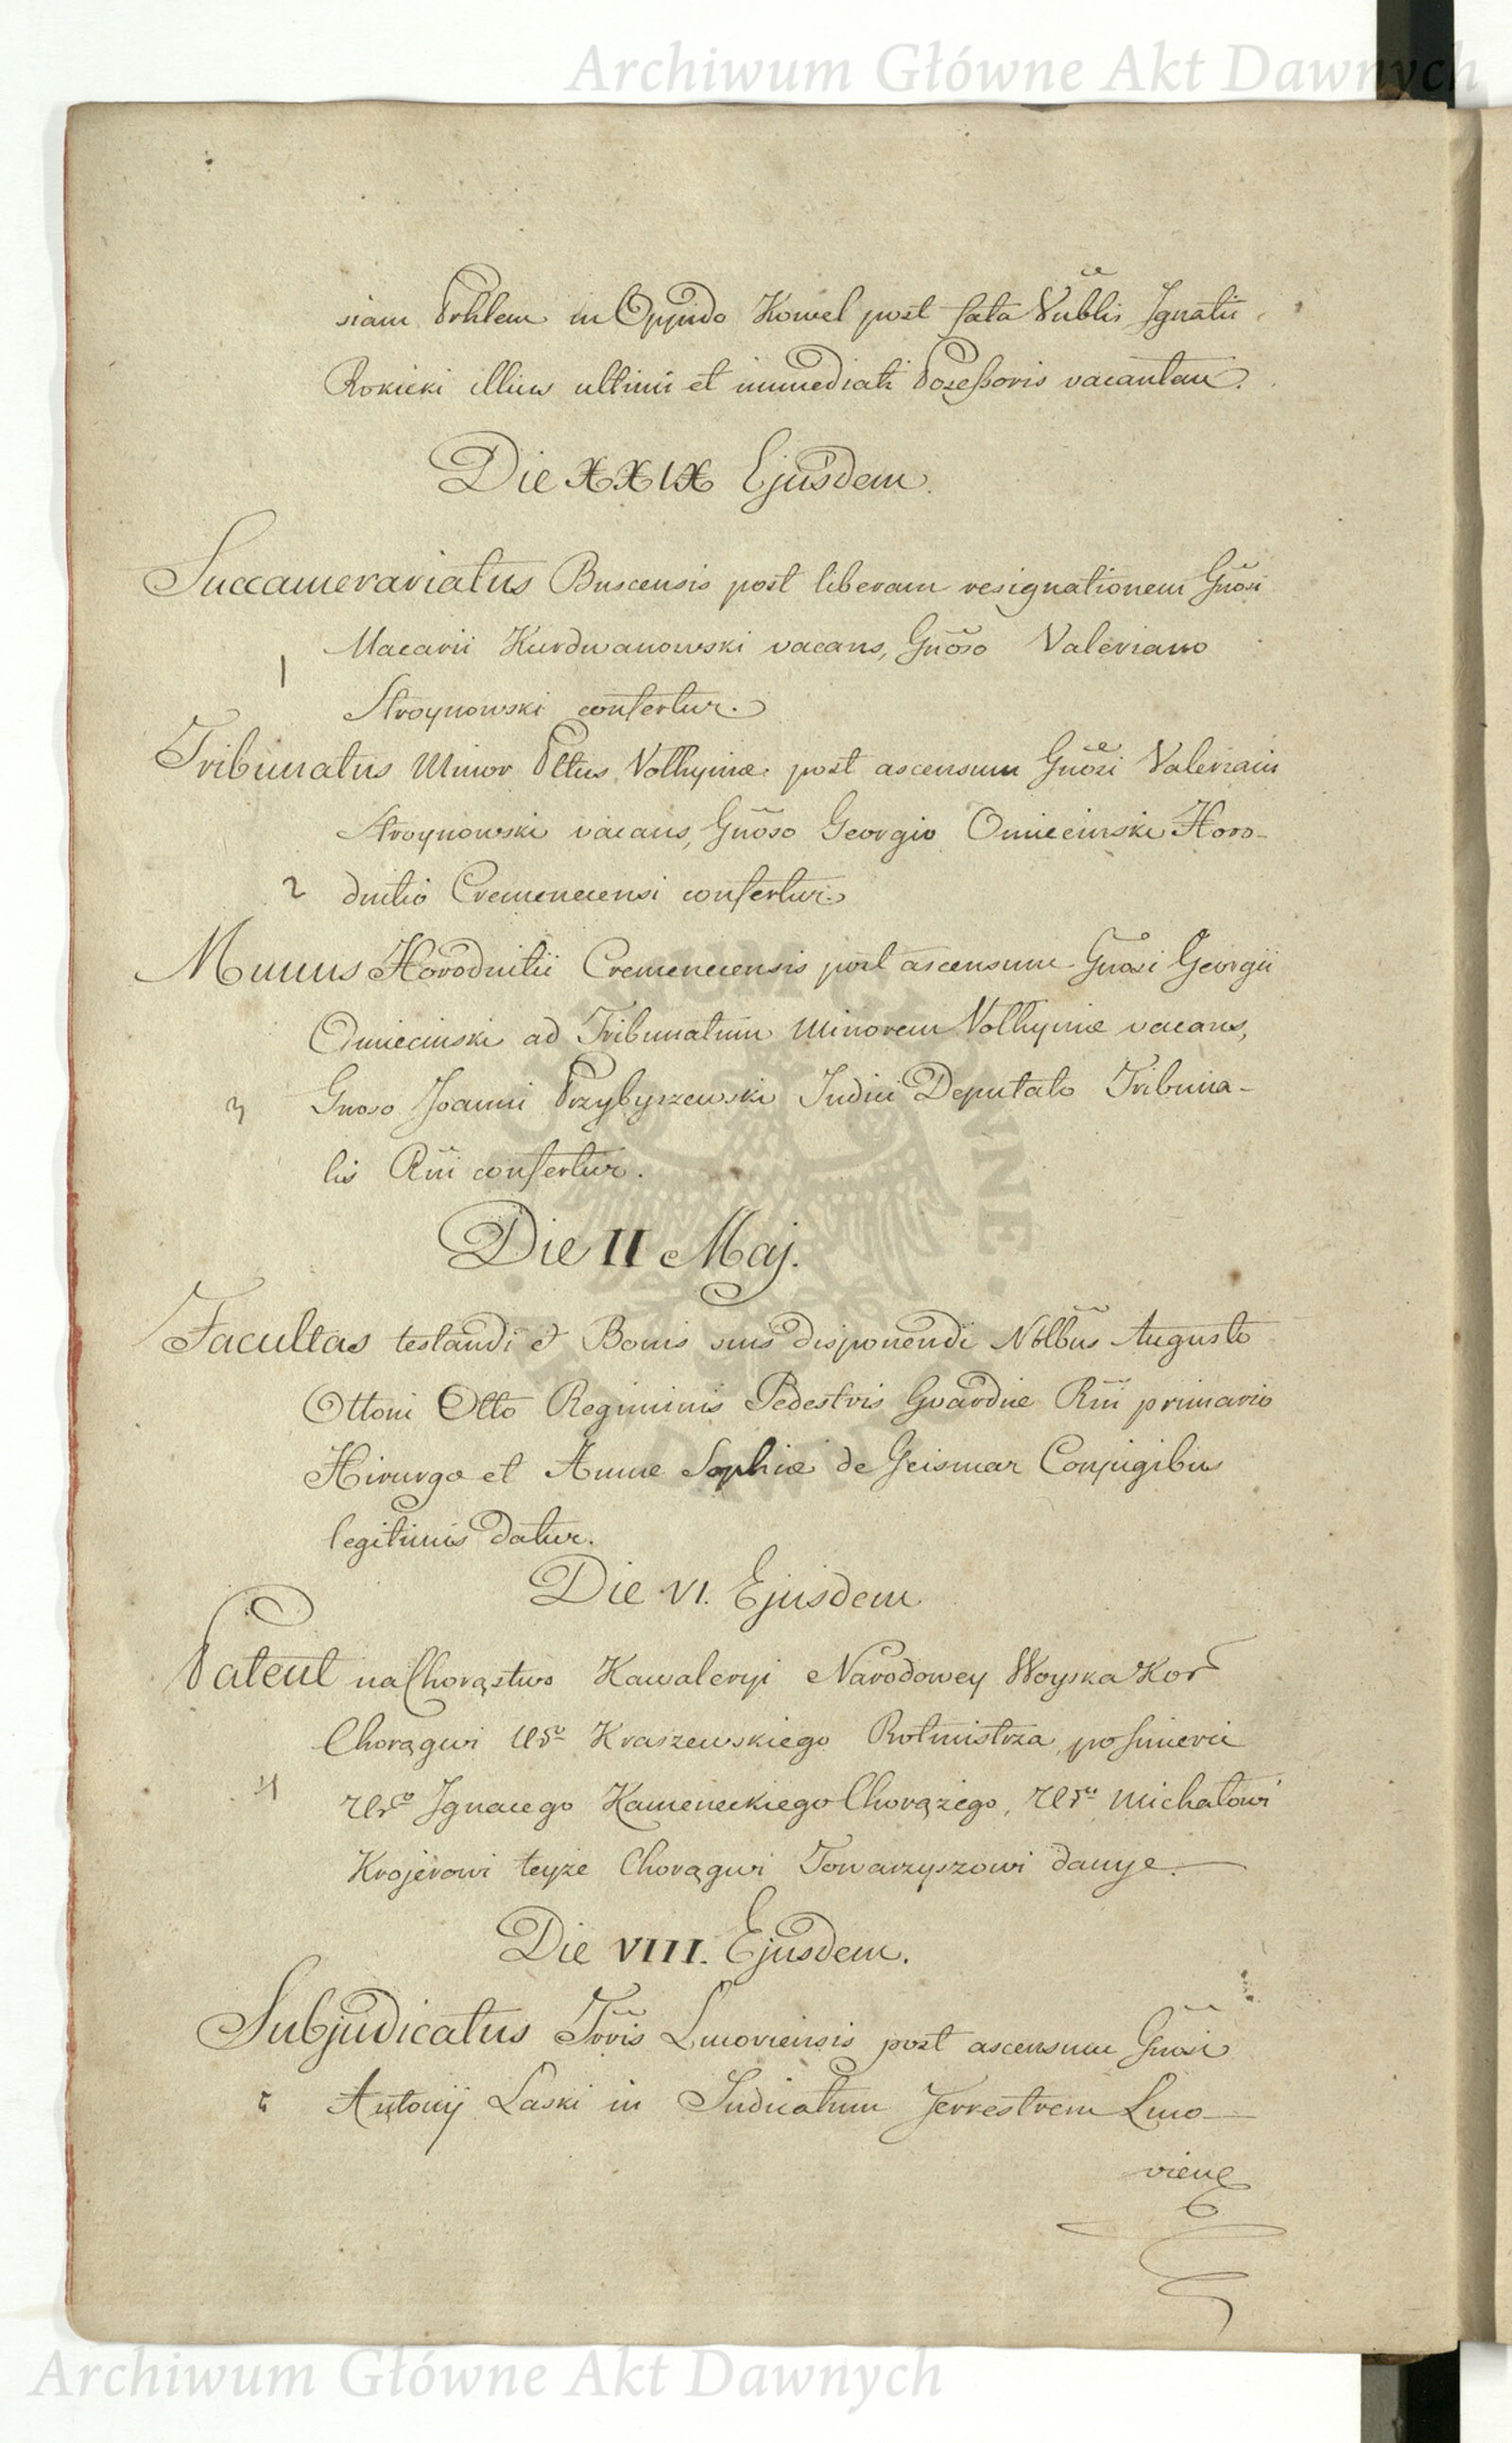 Archiwum Główne Akt Dawnych
siam Prhlem in Oppido Kowel post fata Vnblis Ignatii
Rokicki illius ultimi et immediati Poseßoris vacantem.
Die XXIX Ejusdem.
Succamerariatus Buscensis post liberam resignationem Gnōsi
Macarii Kurdwanowski vacans, Gnōso Valeriano
1
Stroynowski confertur.
Tribunatus Minor Pttus Volhyniæ post ascensum Gnōsi Valeriani
Stroynowski vacans, Gnōso Georgio Omiecinski Horo-
2 dnitio Cremenecensi confertur.
Munus Horodnitii Cremenecensis post ascensum Gnosi Georgii
Omiecinski ad Tribunatum Minorem Volhyniæ vacans,
3 Gnoso Joanni Przybyszewski Judici Deputato Tribuna-
lis Rni confertur.
Die II Maj.
Facultas testandi et Bonis suis disponendi Nobbus Augusto
Ottoni Otto Regiminis Pedestris Guardiæ Rni primario
Hirurgo et Annæ Sophiæ de Geismar Conjugibus
legitimis datur.
Die VI. Ejusdem
Patent na Chorąstwo Kawaleryi Narodowey Woyska Kor
Chorągwi Ur Kraszewskiego Rotmistrza, po śmierci
4 Urgo Ignacego Kameneckiego Chorążego, Uru Michałowi
Krojerowi teyże Chorągwi Towarzyszowi danye.
Die VIII. Ejusdem.
Subjudicatus Trris Leuoviensis post ascensum Gnosi
5 Antonij Laski in Judicatum Terrestrem Leuo-
viens
Archiwum Główne Akt Dawnych